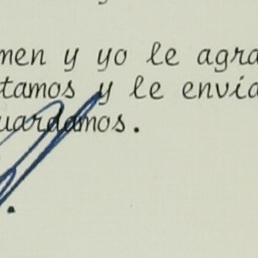 men y yo le agra
tamos y le envía
uardamos.